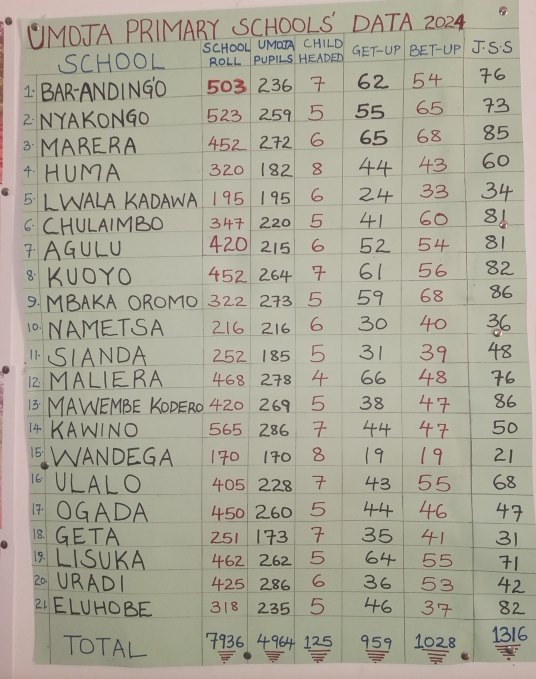 UMOJA PRIMARY SCHOOLS' DATA 2024
SCHOOL SCHOOL ROLL UMOJA PUPILS CHILD HEADED GET-UP BET-UP J.S.S
1. BAR-ANDING'O 503 236 7 62 54 76
2. NYAKONGO 523 259 5 55 65 73
3. MARERA 452 272 6 65 68 85
4. HUMA 320 182 8 44 43 60
5. LWALA KADAWA 195 195 6 24 33 34
6. CHULAIMBO 347 220 5 41 60 81
7. AGULU 420 215 6 52 54 81
8. KUOYO 452 264 7 61 56 82
9. MBAKA OROMO 322 273 5 59 68 86
10. NAMETSA 216 216 6 30 40 36
11. SIANDA 252 185 5 31 39 48
12. MALIERA 468 278 4 66 48 76
13. MAWEMBE KODERO 420 269 5 38 47 86
14. KAWINO 565 286 7 44 47 50
15. WANDEGA 170 170 8 19 19 21
16. ULALO 405 228 7 43 55 68
17. OGADA 450 260 5 44 46 47
18. GETA 251 173 7 35 41 31
19. LISUKA 462 262 5 64 55 71
20. URADI 425 286 6 36 53 42
21. ELUHOBE 318 235 5 46 37 82
TOTAL 7936 4964 125 959 1028 1316